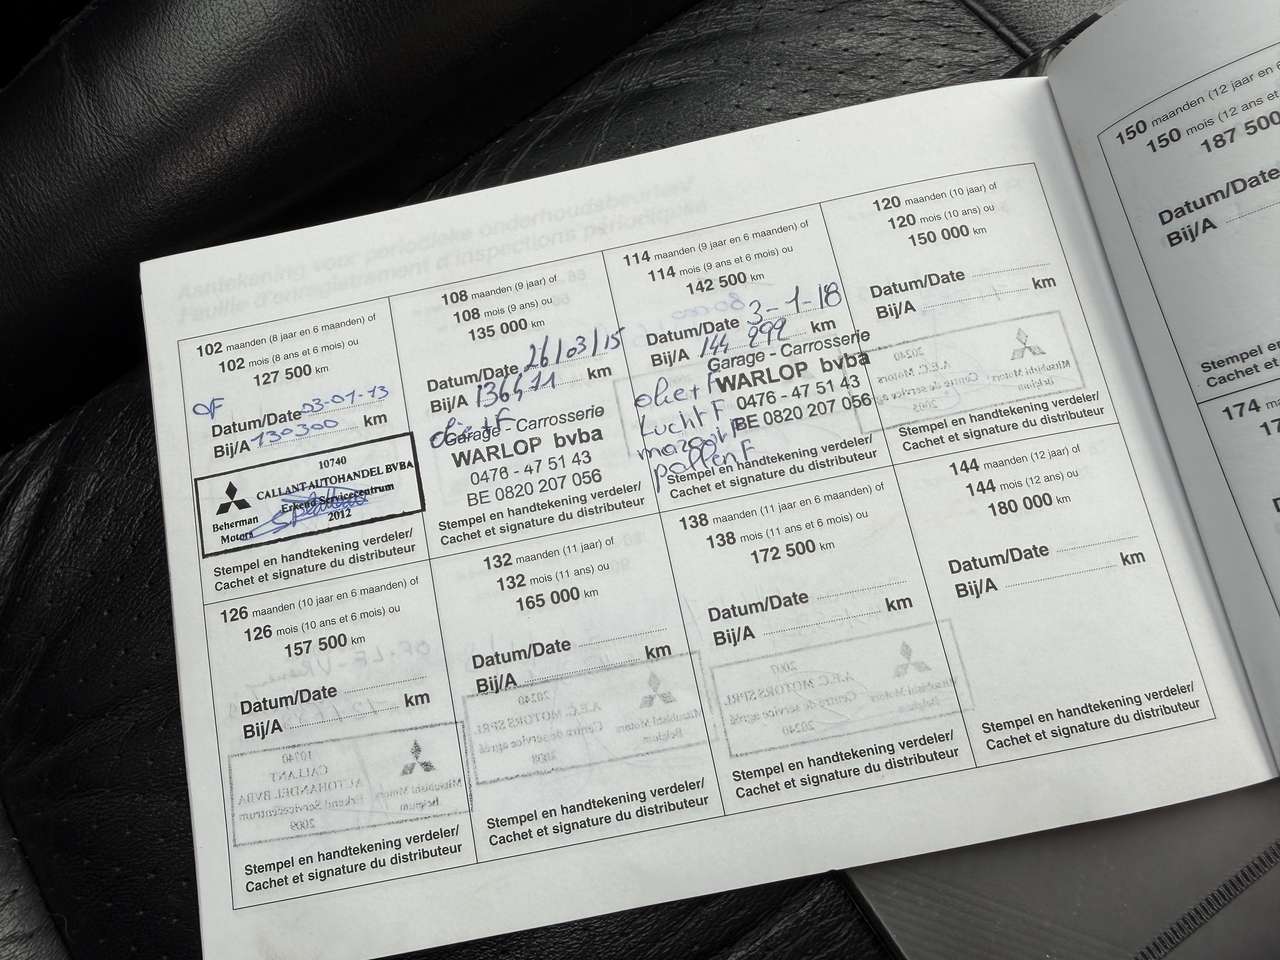 102 maanden (8 jaar en 6 maanden) of
102 mois (8 ans et 6 mois) ou
127 500 km
OF
Datum/Date 03-01-13
Bij/A 130300 km
10740
CALLANT AUTOHANDEL BVBA
Erkend Servicecentrum
Beherman
Motors
2012
Stempel en handtekening verdeler/
Cachet et signature du distributeur
108 maanden (9 jaar) of
108 mois (9 ans) ou
135 000 km
Datum/Date 26/03/15
Bij/A km
Garage - Carrosserie
WARLOP bvba
0476 - 47 51 43
BE 0820 207 056
Stempel en handtekening verdeler/
Cachet et signature du distributeur
114 maanden (9 jaar en 6 maanden) of
114 mois (9 ans et 6 mois) ou
142 500 km
Datum/Date 3-1-18
Bij/A 144 299 km
Garage - Carrosserie
olie+F WARLOP bvba
Lucht F 0476 - 47 51 43
mazout F BE 0820 207 056
pollen F
Stempel en handtekening verdeler/
Cachet et signature du distributeur
120 maanden (10 jaar) of
120 mois (10 ans) ou
150 000 km
Datum/Date
Bij/A km
Stempel en handtekening verdeler/
Cachet et signature du distributeur
126 maanden (10 jaar en 6 maanden) of
126 mois (10 ans et 6 mois) ou
157 500 km
Datum/Date
Bij/A km
Stempel en handtekening verdeler/
Cachet et signature du distributeur
132 maanden (11 jaar) of
132 mois (11 ans) ou
165 000 km
Datum/Date
Bij/A km
Stempel en handtekening verdeler/
Cachet et signature du distributeur
138 maanden (11 jaar en 6 maanden) of
138 mois (11 ans et 6 mois) ou
172 500 km
Datum/Date
Bij/A km
Stempel en handtekening verdeler/
Cachet et signature du distributeur
144 maanden (12 jaar) of
144 mois (12 ans) ou
180 000 km
Datum/Date
Bij/A km
Stempel en handtekening verdeler/
Cachet et signature du distributeur
150 maanden (12 jaar en 6
150 mois (12 ans et
187 500
Datum/Date
Bij/A
Stempel en
Cachet et s
174 maan